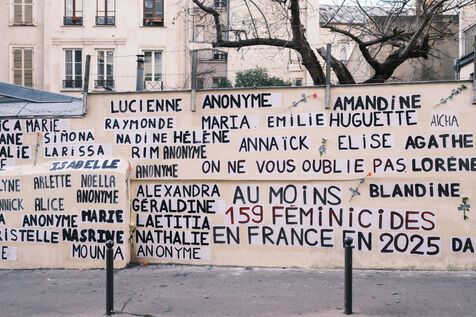 LUCIENNE ANONYME AMANDINE
CA MARIE RAYMONDE MARIA EMILIE HUGUETTE AICHA
ANE SIMONA NADINE HÉLÈNE ANNAÏCK ELISE AGATHE
ALIE LARISSA RIM ANONYME ON NE VOUS OUBLIE PAS LORÈNE
ISABELLE ANONYME
LYNE ARLETTE NOELLA ALEXANDRA AU MOINS BLANDINE
ANNICK ALICE ANONYME GÉRALDINE 159 FÉMINICIDES
A ANONYME MARIE LAETITIA
RISTELLE NASRINE NATHALIE EN FRANCE EN 2025 DA
MOUNIA ANONYME